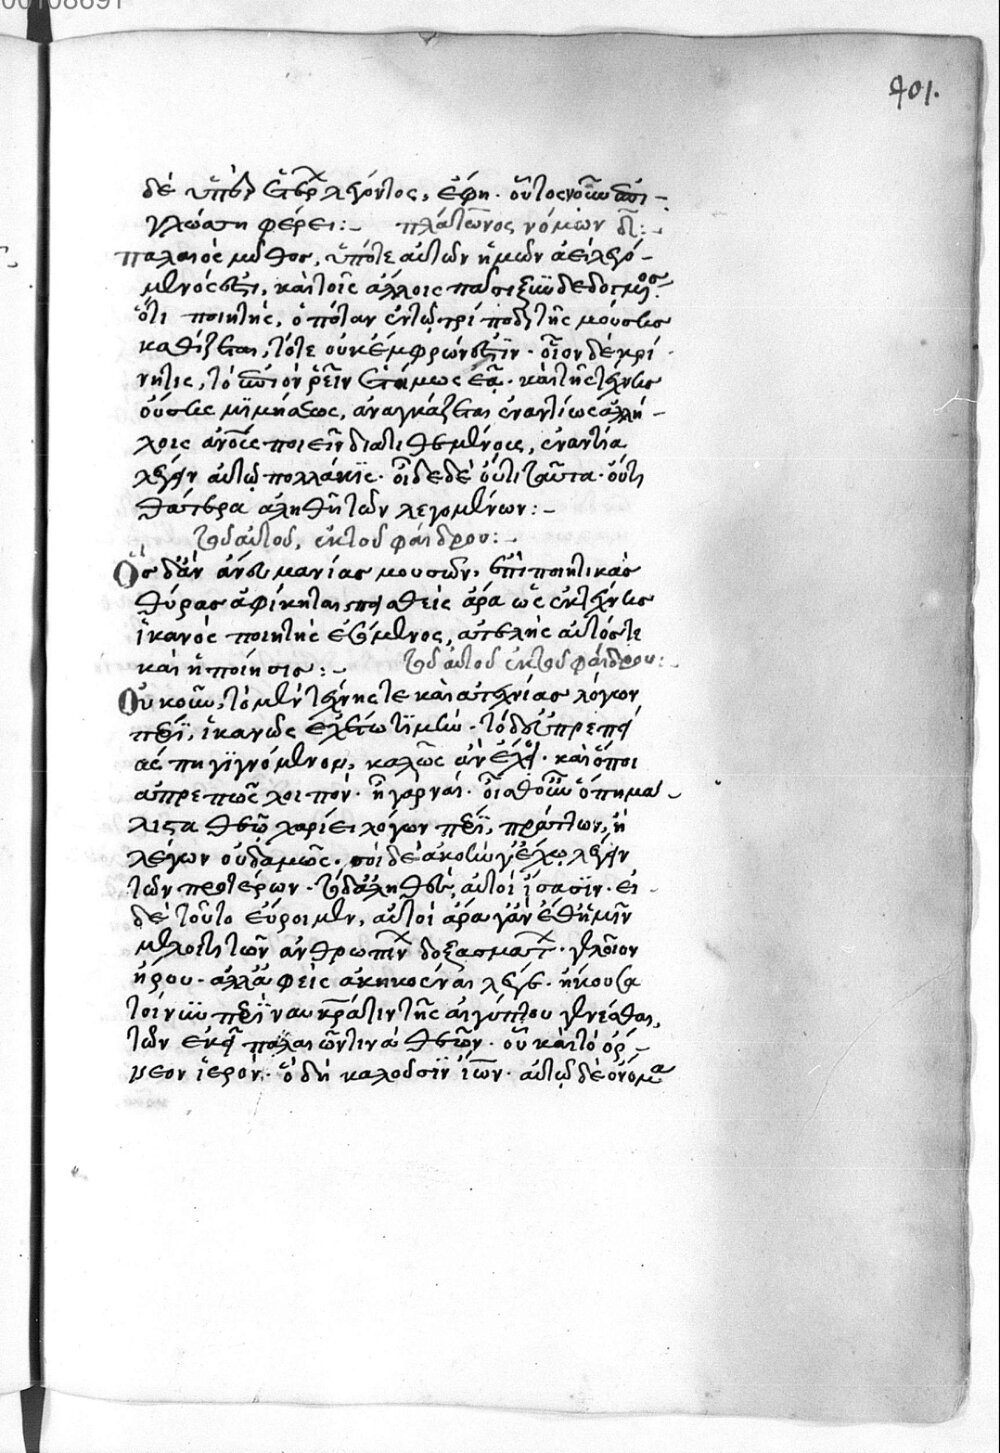 401.
δὲ ὑπὲρ ἑτέρου λέγοντος, ἔφη. οὗτος νοῦν ἐπὶ
γλώσση φέρει:  πλάτωνος νόμων δ:
παλαιὸς μῦθος, ὑπότε αὐτῶν ἡμῶν ἀεὶ λεγό-
μενός ἐστι, καὶ τοῖς ἄλλοις πᾶσι ξυνδεδογμένος.
ὅτι ποιητὴς, ὁπόταν ἐν τῷ τρίποδι τῆς μούσης
καθίζεται, τότε οὐκ ἔμφρων ἐστὶν. οἷον δὲ κρή
νη τις, τὸ ἐπιὸν ῥεῖν ἑτοίμως ἐᾷ. καὶ τῆς τέχνης
οὔσης μιμήσεως, ἀναγκάζεται ἐναντίως ἀλλή-
λοις ἀνθρώπους ποιεῖν διατιθεμένους, ἐναντία
λέγειν αὑτῷ πολλάκις. οἶδε δὲ οὔτ' εἰ ταῦτα. οὔτ' εἰ
θάτερα ἀληθῆ τῶν λεγομένων:-
τοῦ αὐτοῦ, ἐκ τοῦ φαίδρου:-
Ὃς δ' ἂν ἄνευ μανίας μουσῶν, ἐπὶ ποιητικὰς
θύρας ἀφίκηται, πεισθεὶς ἄρα ὡς ἐκ τέχνης
ἱκανὸς ποιητὴς ἐσόμενος, ἀτελὴς αὐτός τε
καὶ ἡ ποίησις:-  τοῦ αὐτοῦ ἐκ τοῦ φαίδρου:
Οὐκοῦν, τὸ μὲν τέχνης τε καὶ ἀτεχνίας λόγων
πέρι, ἱκανῶς ἐχέτω τιμὴν. τὸ δ' εὐπρεπεί
ας πῆ γιγνόμενον, καλῶς ἂν ἔχοι. καὶ ὅποι
ἀπρεπῶς λοιπόν. ἦ γὰρ ναί. οἶσθ' οὖν ὅπη μα-
λιστα θεῷ χαριεῖ λόγων πέρι, πράττων, ἢ
λέγων οὐδαμῶς. σοὶ δὲ ἀκοήν γ' ἔχω λέγειν
τῶν προτέρων. τὸ δ' ἀληθὲς, αὐτοὶ ἴσασιν. εἰ
δὲ τοῦτο εὕροιμεν, αὐτοὶ ἆρά γ' ἂν ἔθ' ἡμῖν
μέλοι τι τῶν ἀνθρωπίνων δοξασμάτων. γελοῖον
ἤρου. ἀλλ' ἃ φῂς ἀκηκοέναι λέγε. ἤκουσα
τοίνυν περὶ ναύκρατιν τῆς αἰγύπτου γενέσθαι,
τῶν ἐκεῖ παλαιῶν τινὰ θεῶν. οὗ καὶ τὸ ὄρ-
νεον ἱερὸν. ὃ δὴ καλοῦσιν ἴων. αὐτῷ δὲ ὄνομα